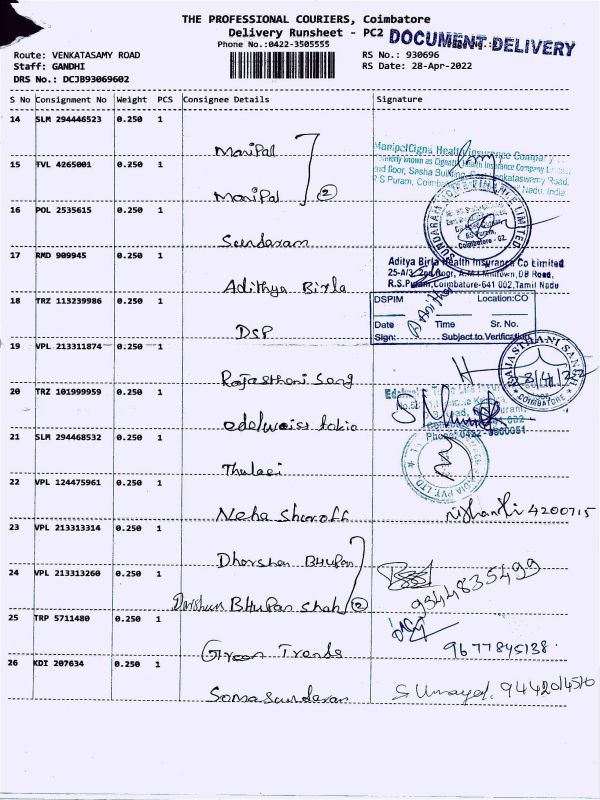 THE PROFESSIONAL COURIERS, Coimbatore
Delivery Runsheet - PC2
DOCUMENT DELIVERY
Phone No.:0422-3505555
Route: VENKATASAMY ROAD
RS No.: 930696
Staff: GANDHI
RS Date: 28-Apr-2022
DRS No.: DCJB93069602
S No Consignment No Weight PCS Consignee Details Signature
14 SLM 294446523 0.250 1
Manipal
ManipalCigna Health Insurance Company
15 TVL 4265001 0.250 1
Manipal 2
R S Puram,
16 POL 2535615 0.250 1
Sundaram
SUNDARAM FINANCE LIMITED
Coimbatore - 02
17 RMD 909945 0.250 1
Adithya Birla
Aditya Birla Health Insurance Co Limited
25-A/3, 2nd Floor, DB Road,
R.S.Puram, Coimbatore-641 002, Tamil Nadu
18 TRZ 113239986 0.250 1
DSP
DSPIM Location:CO
Date Time Sr. No.
Sign: Subject to Verification
19 VPL 213311874 1
Rajasthani Sang
RAJASTHANI SANGH
COIMBATORE
20 TRZ 101999959 0.250 1
edelweiss tokio
Phone: 0422
21 SLM 294468532 0.250 1
Thulasi
22 VPL 124475961 0.250 1
Neha Shroff
nishanthi 4200715
23 VPL 213313314 0.250 1
Dharshan Bhupan
24 VPL 213313260 0.250 1
Darshun Bhupan Shah 2
9344835499
25 TRP 5711480 0.250 1
Green Trends
9677845138
26 KDI 207634 0.250 1
Somasundaran